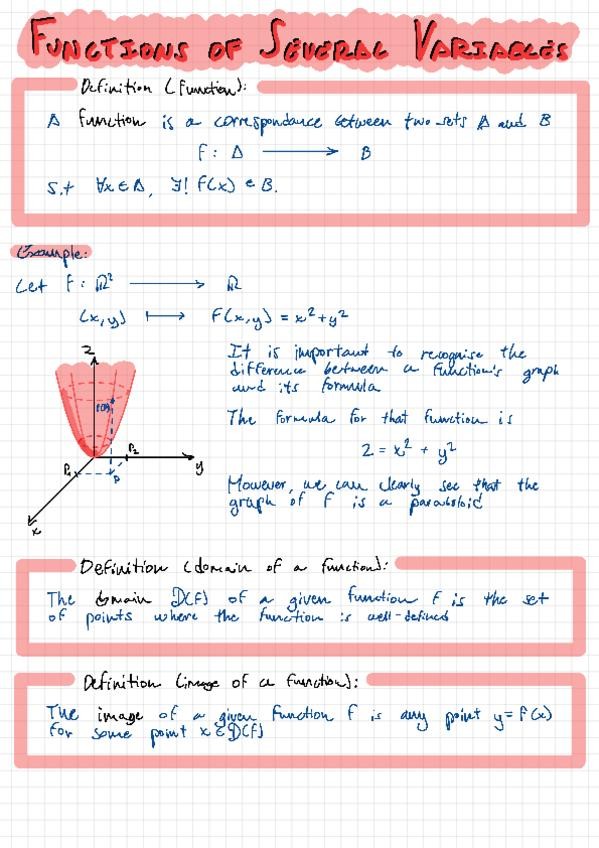 FUNCTIONS OF SEVERAL VARIABLES
Definition (Function):
A function is a correspondance between two sets A and B
F: A ⟶ B
S.t ∀x∈A, ∃! F(x) ∈ B.
Example:
Let F: ℝ² ⟶ ℝ
(x,y) ⟼ F(x,y) = x²+y²
It is important to recognise the
difference between a function's graph
and its formula
The formula for that function is
z = x² + y²
However, we can clearly see that the
graph of F is a paraboloid
z
P₂
P₁
P
y
x
Definition (domain of a function):
The domain D(F) of a given function F is the set
of points where the function is well-defined
Definition (image of a function):
The image of a given function f is any point y=F(x)
for some point x∈D(F)